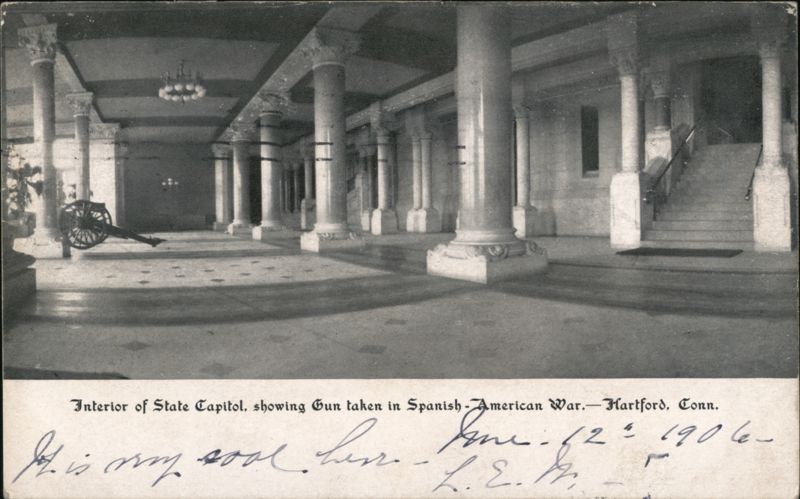 Interior of State Capitol, showing Gun taken in Spanish-American War.—Hartford, Conn.
June - 12" 1906 -
It is very cool here -
L. E. M. -